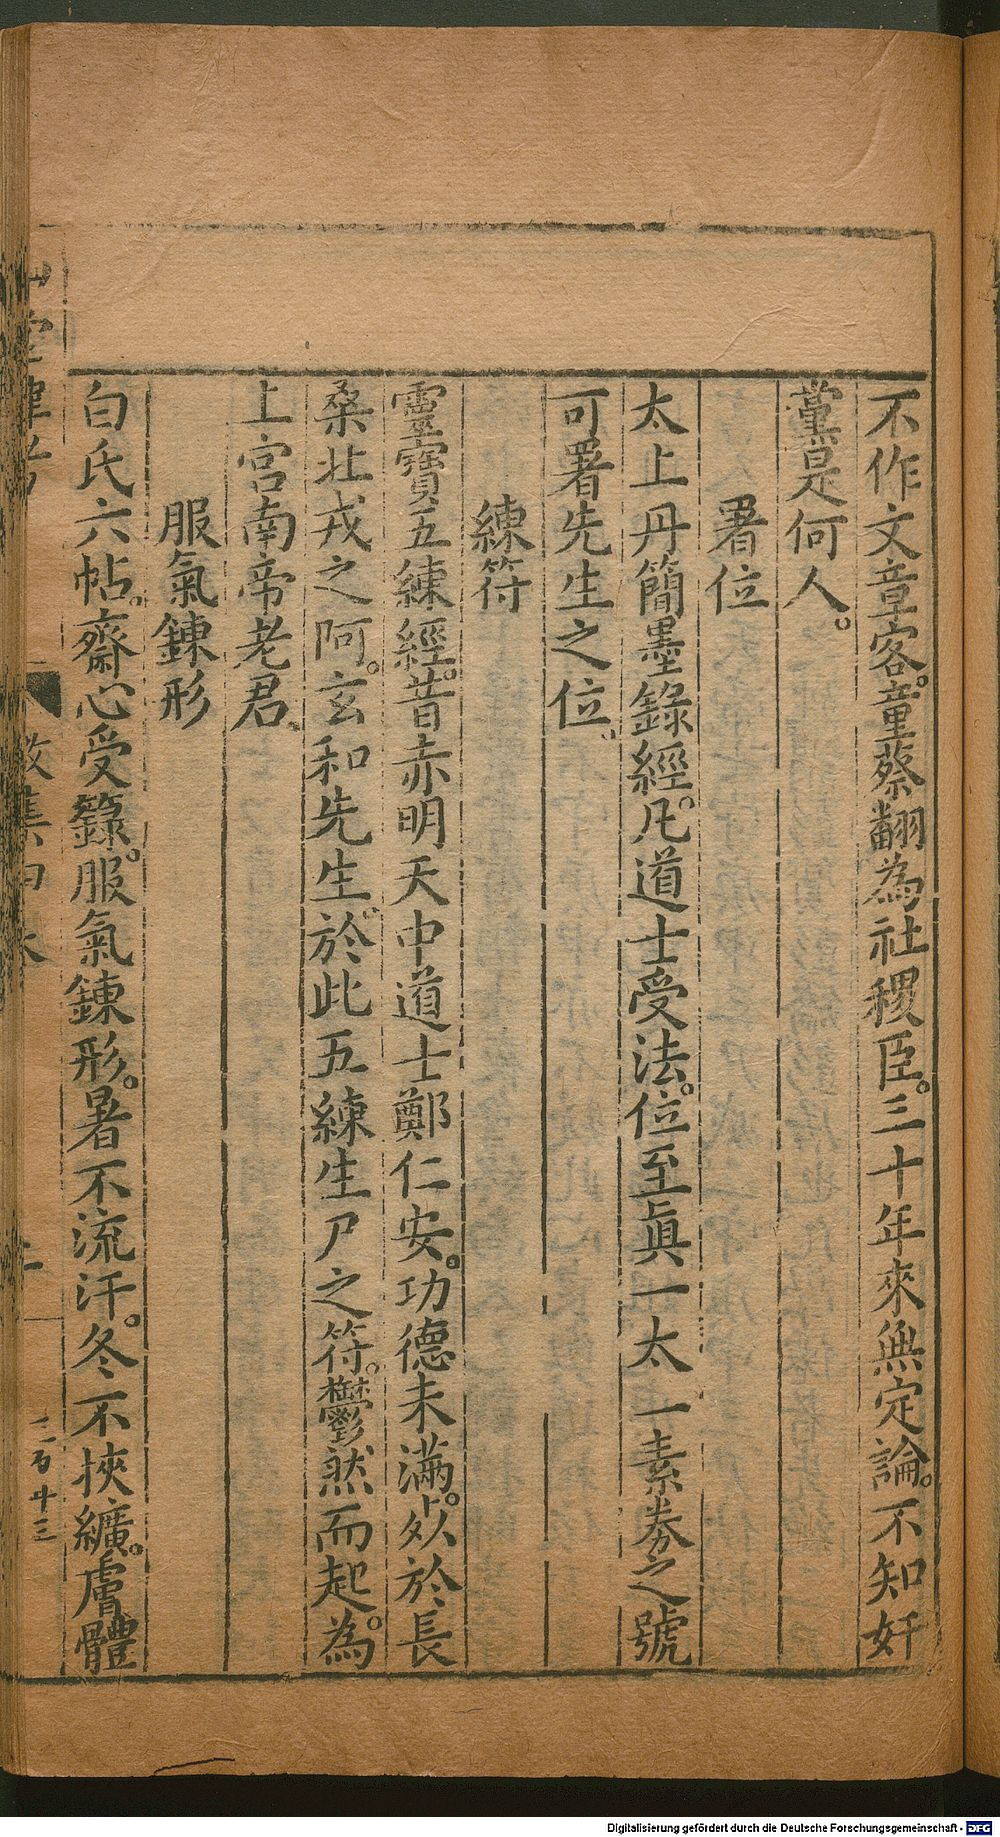 不作文章客。童蔡翻為社稷臣。三十年來無定論。不知奸
黨是何人。
署位
太上丹簡墨籙經。凡道士受法。位至眞一太一素劵之號
可署先生之位。
練符
靈寶五練經。昔赤明天中道士鄭仁安。功德未滿。㱔於長
桑北戎之阿。玄和先生。於此五練生尸之符。鬱然而起。為
上宮南帝老君。
服氣錬形
白氏六帖。齋心受籙。服氣錬形。暑不流汗。冬不挾纊。膚體
山堂肆考
徵集四
三百廾三
Digitalisierung gefördert durch die Deutsche Forschungsgemeinschaft - DFG